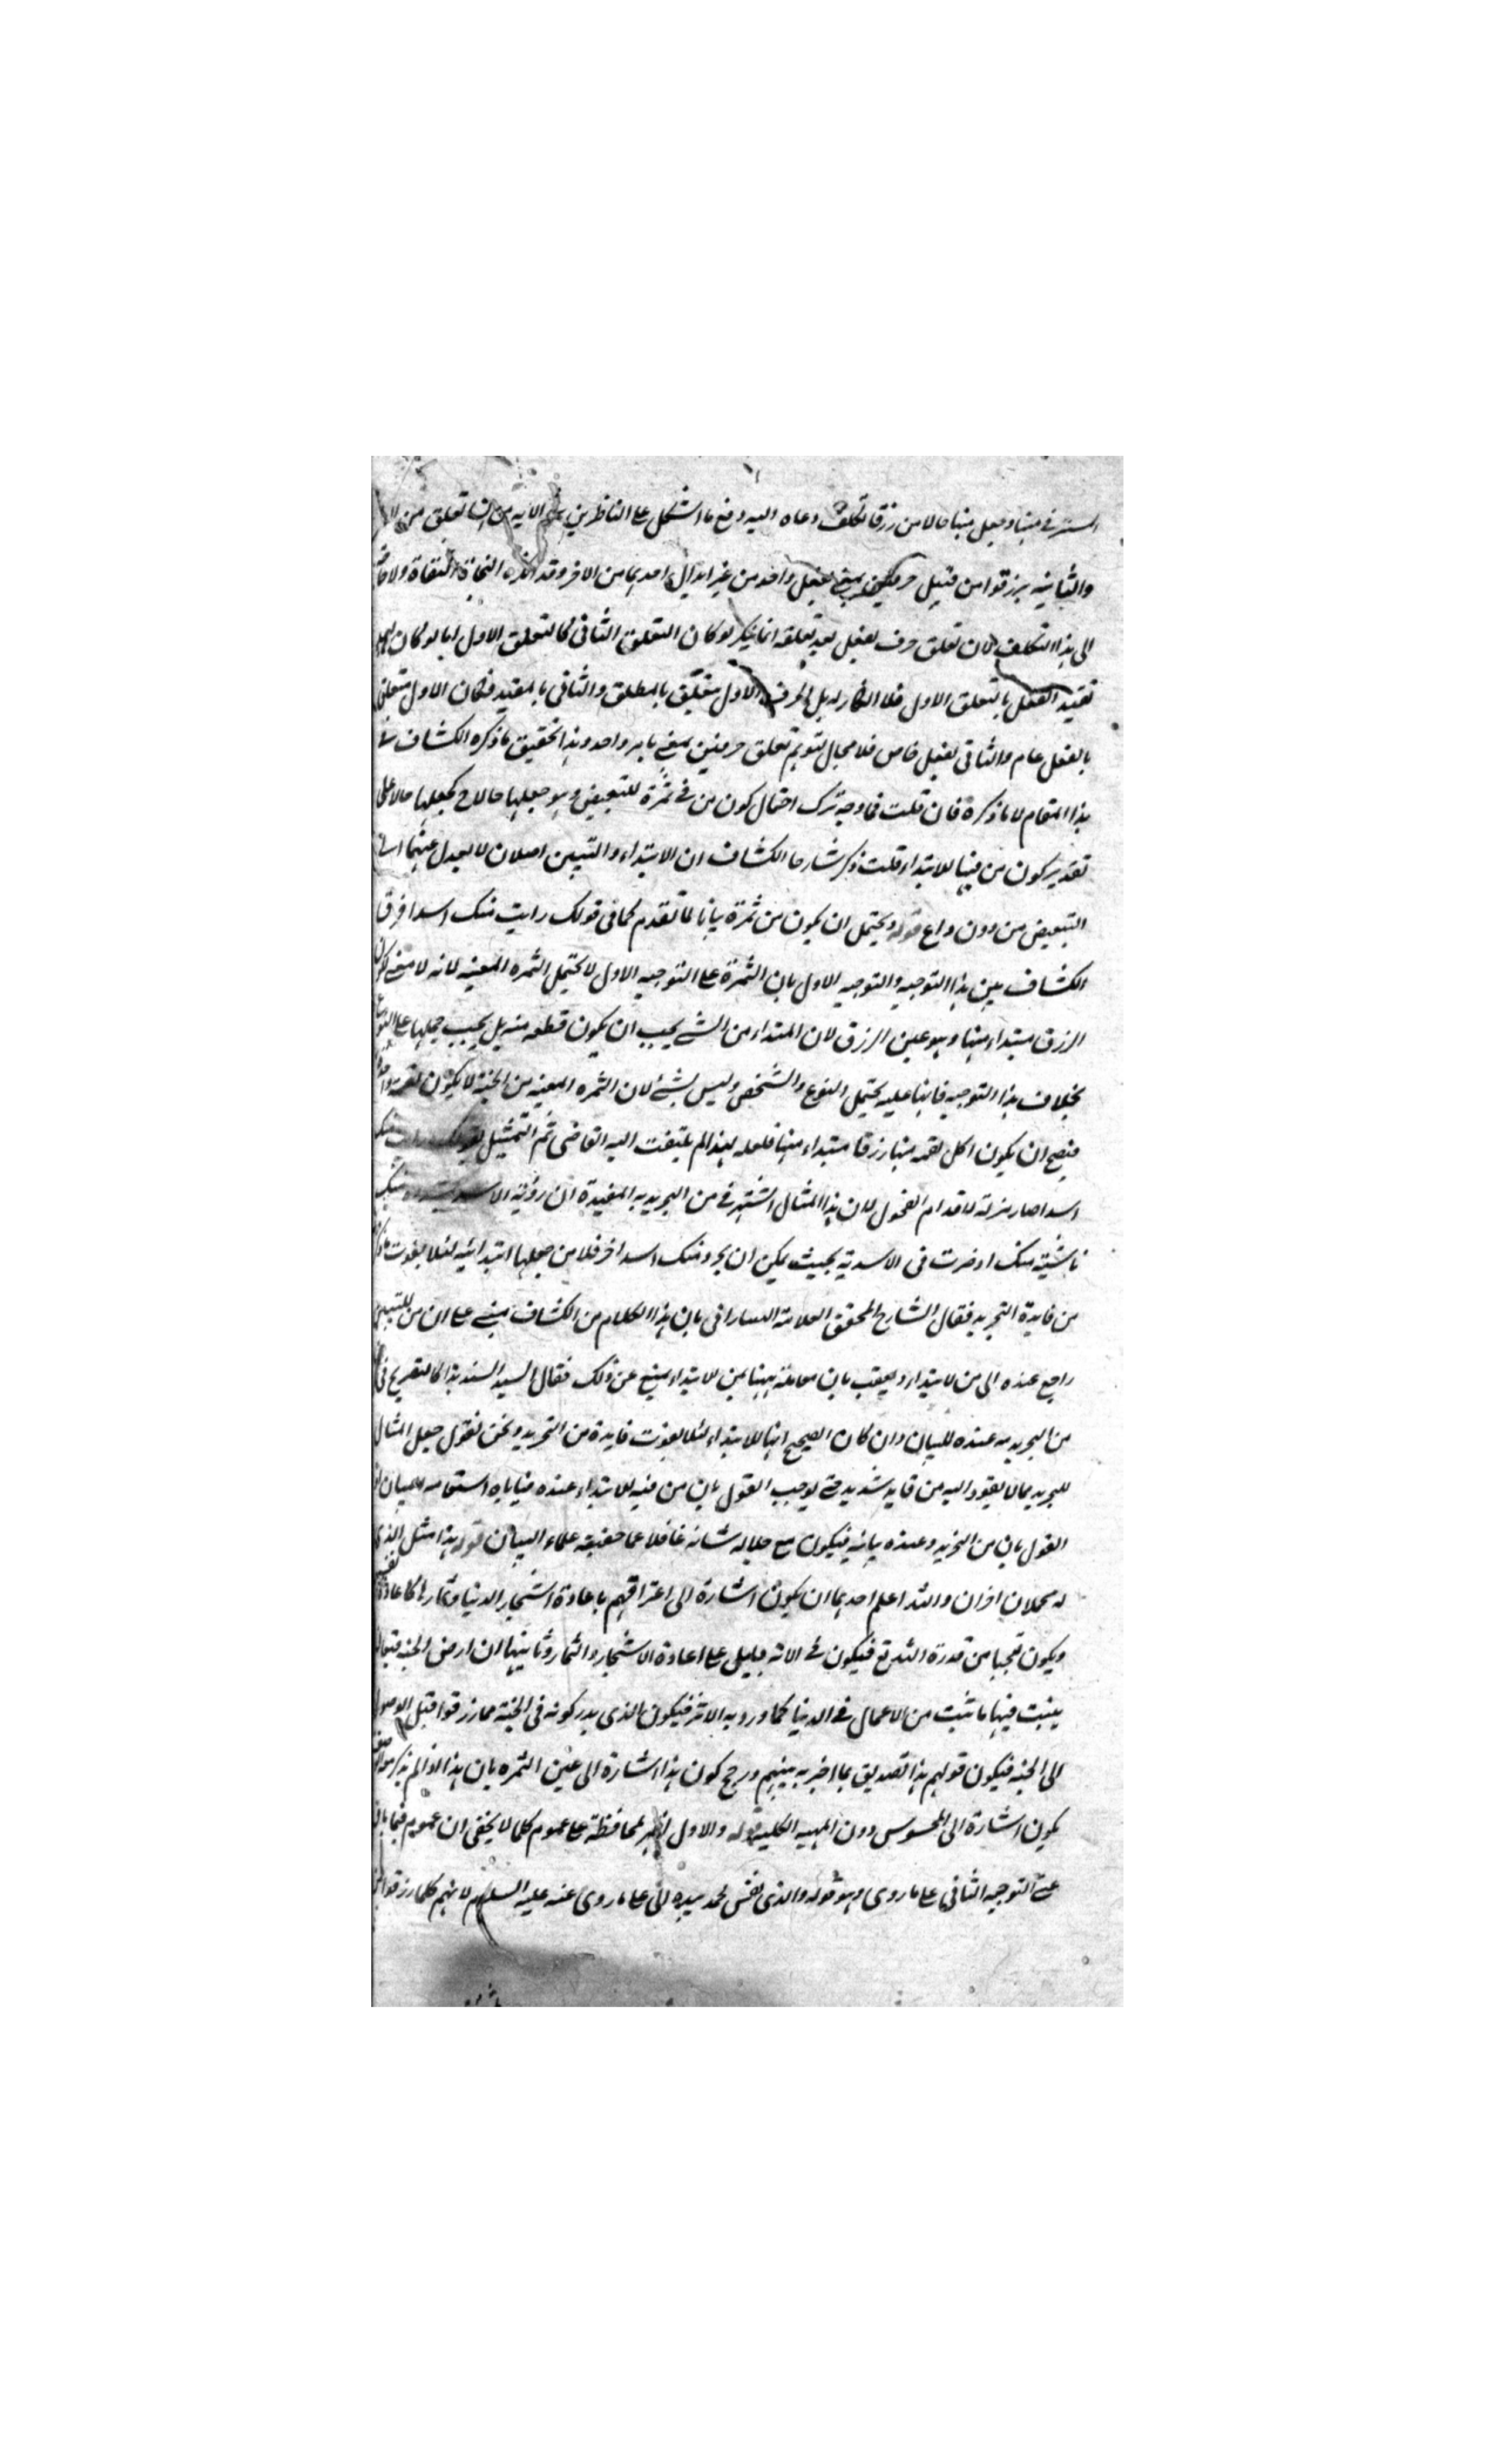 المستتر في منها وجعل منها حالا من رزقا تكلف دعاه اليه دفع ما اشكل على الناظرين في الآية من ان تعلق من
والثانية برزقوا من قبيل حرفين بمعنى بفعل واحد من غير ابدال احديهما من الاخر وقد انكره النحاة الثقاة ولا حاجة
الى هذا التكلف لان تعلق حرف بفعل بعد تعلقه انما ينكر لو كان التعلق الثاني كالتعلق الاول اما لو كان
تقييد الفعل بالتعلق الاول فلا انكار له بل الحرف الاول متعلق بالمطلق والثاني بالمقيد فكان الاول متعلق
بالفعل عام والثاني بفعل خاص فلا مجال لتوهم تعلق حرفين بمعنى بامر واحد وهذا تحقيق ما ذكره الكشاف في
هذا المقام لا ما ذكره فان قلت فما وجه ترك احتمال كون من في ثمرة للتبعيض وهو جعلها حالا ح كجعلها حالا على
تقدير كون من فيها للابتداء قلت ذكر شارحا الكشاف ان الابتداء والتبيين اصلان لا يعدل عنهما الى
التبعيض من دون داع قوله ويحتمل ان يكون من ثمرة بيانا لما تقدم كما في قولك رايت منك اسدا فرق
الكشاف بين هذا التوجيه والتوجيه الاول بان الثمرة على التوجيه الاول لا يحتمل الثمره المعينه لانه لا معنى لكون
الرزق مبتداء منها وهو عين الرزق لان المبتداء من الشئ يجب ان يكون قطعه منه بل يجب حملها على النوع
بخلاف هذا التوجيه فانها عليه يحتمل النوع والشخص وليس بشئ لان الثمره المعينه من الجنة لا يكون لقمة واحدة
فيصح ان يكون اكل لقمه منها رزقا مبتداء منها فلعله لهذا لم يلتفت اليه القاضي ثم التمثيل بقولك رايت منك
اسدا صار مزلة لاقدام الفحول لان هذا المثال اشتهر في من التجريديه المفيدة ان رؤية الاسد منك
ناشئة منك او صرت في الاسدية بحيث يمكن ان يجرد منك اسدا اخر فلا من جعلها ابتدائيه لئلا يفوت ما ذكر
من فايدة التجريد فقال الشارح المحقق العلامة التفتازاني بان هذا الكلام من الكشاف مبني على ان من للتبيين
راجع عنده الى من لابتداء وتعقب بان مقابلة بينها بمن للابتداء يمنع عن ذلك فقال السيد السند هذا كالتصريح في ان
من التجريديه عنده للبيان وان كان الصحيح انها للابتداء لئلا يفوت فايدة من التجريد ونحن نقول جعل المثال
للتجريد مما لا يقود اليه من قايد شديد حتى يوجب القول بان من فيه للابتداء عنده
القول بان من التجريد وعنده بيانيه فيكون مع جلاله شانه غافلا عما حققه علماء البيان قوله هذا مثل الذي
له محملان اخران والله اعلم احديهما ان يكون اشارة الى اعترافهم باعادة اشجار الدنيا وثمارها كاعادة انفسهم
ويكون تعجبا من قدرة الله تع فيكون في الاية دليل على اعادة الاشجار والثمار وثانيها ان ارض الجنة قيعان
ينبت فيها ما تثبت من الاعمال في الدنيا كما ورد به الاثر فيكون الذي يدركونه في الجنة مما رزقوا قبل الوصول
الى الجنه فيكون قولهم هذا تصديق بما اخبر به نبيهم ورجح كون هذا اشارة الى عين الثمره بان هذا اذا لم يذكر موصوفه
يكون اشارة الى المحسوس دون المهيه الكليه قوله والاول اظهر لمحافظة على عموم كلما لا يخفى ان عموم فيما بان
على التوجيه الثاني على ما روى وهو قوله والذي نفس محمد بيده الخ على ما روى عنه عليه السلم لانهم كلما رزقوا